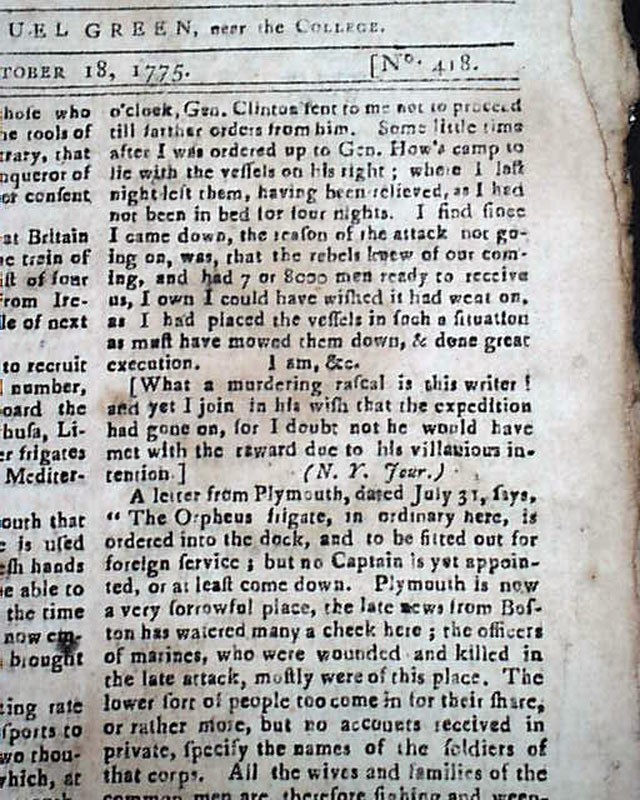 UEL GREEN, near the COLLEGE.
TOBER 18, 1775.
[No. 418.
hose who
he tools of
rary, that
nqueror of
or consent
at Britain
he train of
ist of four
From Ire-
le of next
to recruit
number,
board the
husa, Li-
er frigates
Mediter-
outh that
e is used
esh hands
e able to
the time
now em-
brought
ting rate
sports to
wo thou-
which, at
o'clock, Gen. Clinton sent to me not to proceed
till farther orders from him. Some little time
after I was ordered up to Gen. How's camp to
lie with the vessels on his right ; where I last
night left them, having been relieved, as I had
not been in bed for four nights. I find since
I came down, the reason of the attack not go-
ing on, was, that the rebels knew of our com-
ing, and had 7 or 8000 men ready to receive
us, I own I could have wished it had went on,
as I had placed the vessels in such a situation
as must have mowed them down, & done great
execution. I am, &c.
[What a murdering rascal is this writer !
and yet I join in his wish that the expedition
had gone on, for I doubt not he would have
met with the reward due to his villainious in-
tention.] (N. Y. Jour.)
A letter from Plymouth, dated July 31, says,
“ The Orpheus frigate, in ordinary here, is
ordered into the dock, and to be fitted out for
foreign service ; but no Captain is yet appoin-
ted, or at least come down. Plymouth is now
a very sorrowful place, the late news from Bos-
ton has watered many a cheek here ; the officers
of marines, who were wounded and killed in
the late attack, mostly were of this place. The
lower sort of people too come in for their share,
or rather more, but no accounts received in
private, specify the names of the soldiers of
that corps. All the wives and families of the
common men are, therefore sighing and weep-